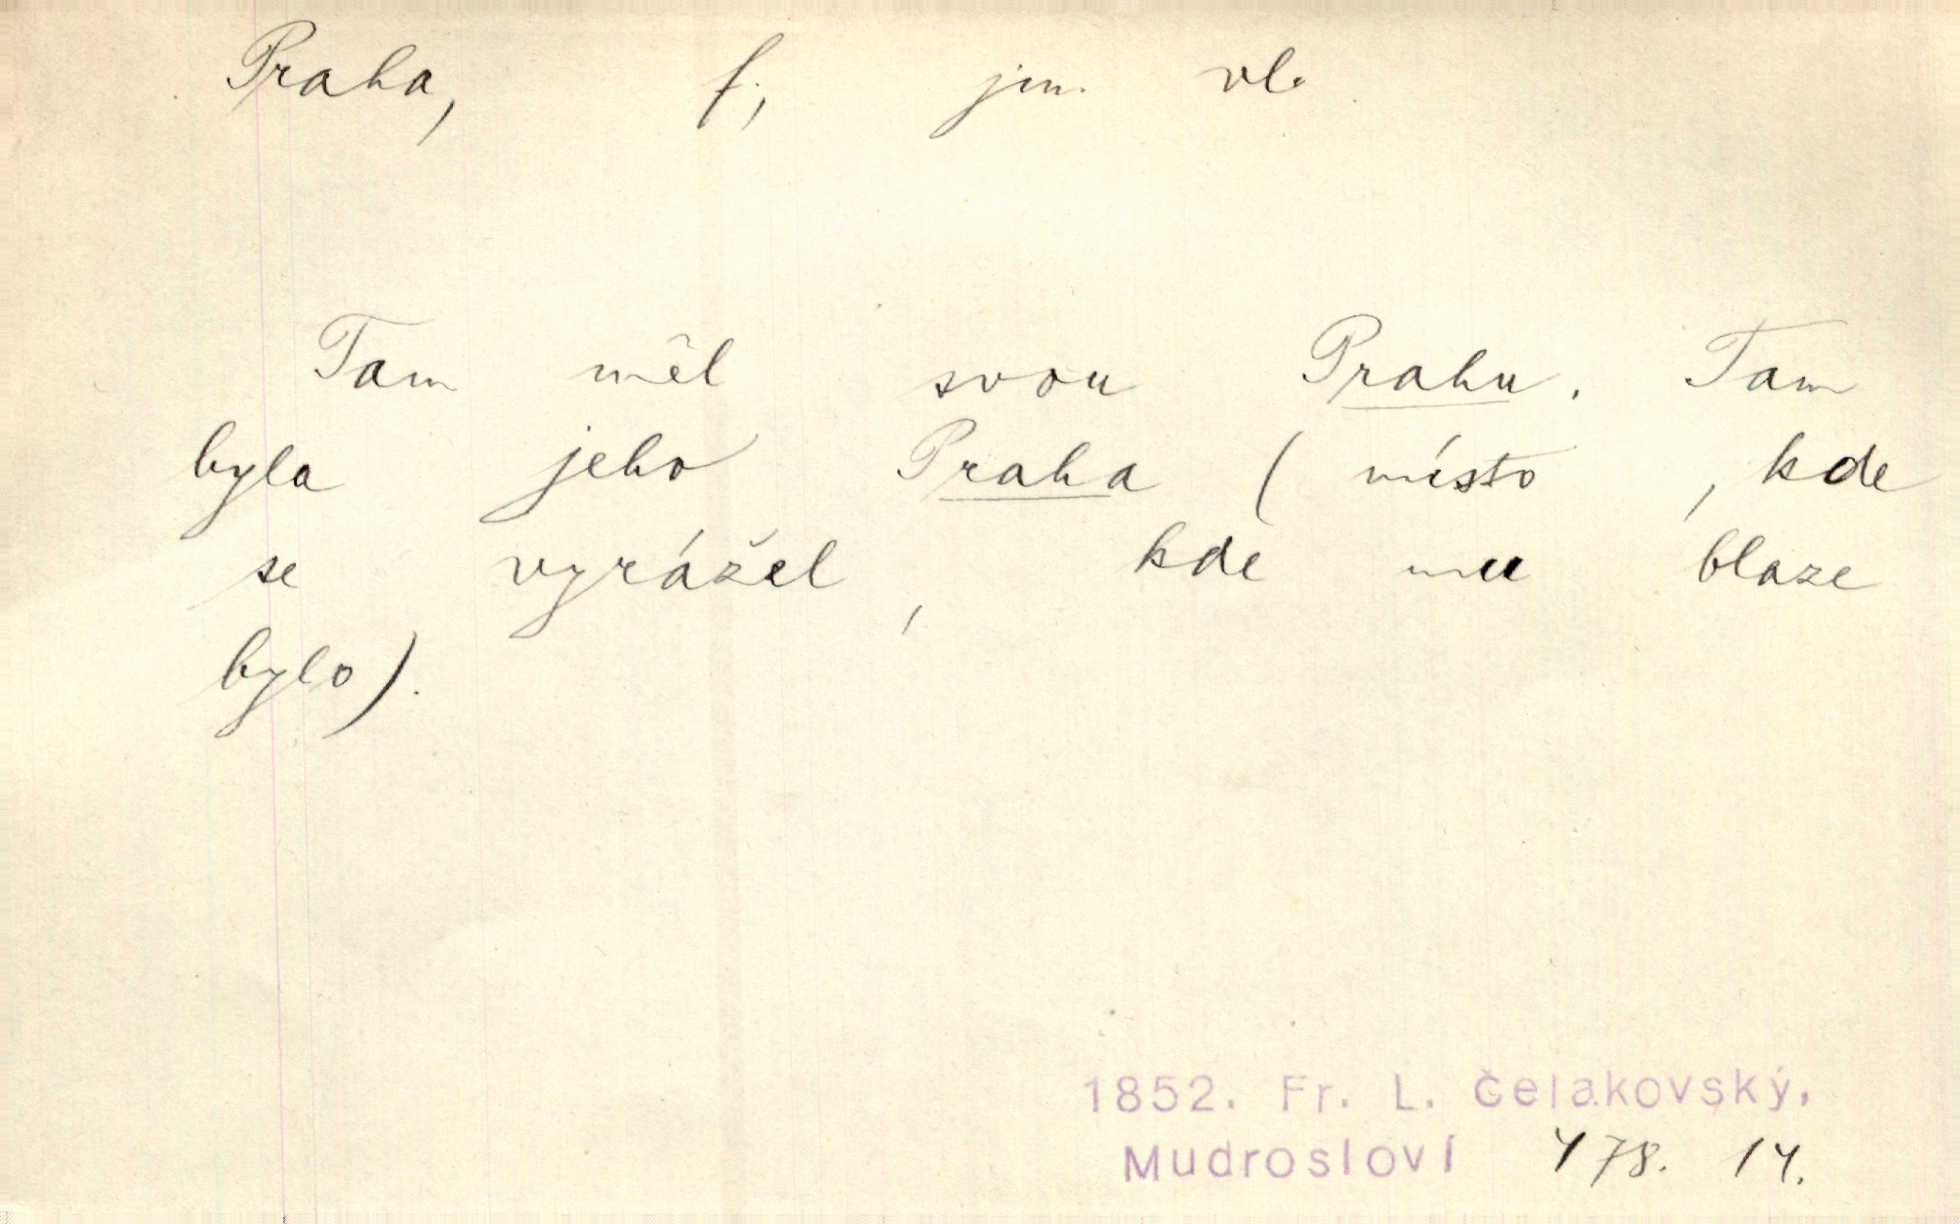 Praha, f., jm. vl.
Tam měl svou Prahu. Tam
byla jeho Praha (místo, kde
se vyrážel, kde mu blaze
bylo).
1852. Fr. L. Čelakovský,
Mudrosloví 478. 14.